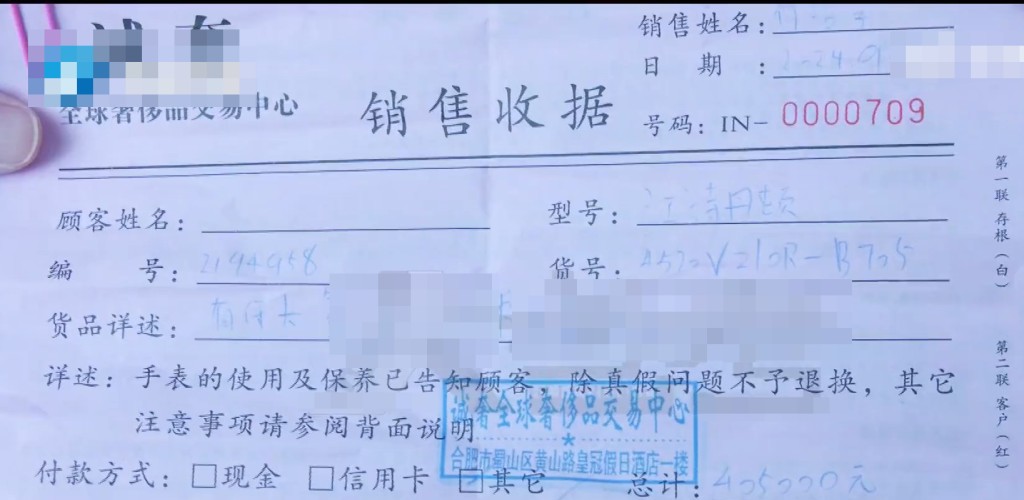 销售姓名:
日 期 :
全球奢侈品交易中心
销售收据
号码: IN- 0000709
顾客姓名:
型号: 江诗丹顿
编 号: 2194958
货号: 4520V210R-B705
货品详述: 有保卡
详述: 手表的使用及保养已告知顾客, 除真假问题不予退换, 其它
注意事项请参阅背面说明
诚奢全球奢侈品交易中心
合肥市蜀山区黄山路皇冠假日酒店一楼
付款方式: □现金 □信用卡 □其它 总计: 405000元
第一联 存根(白)
第二联 客户(红)